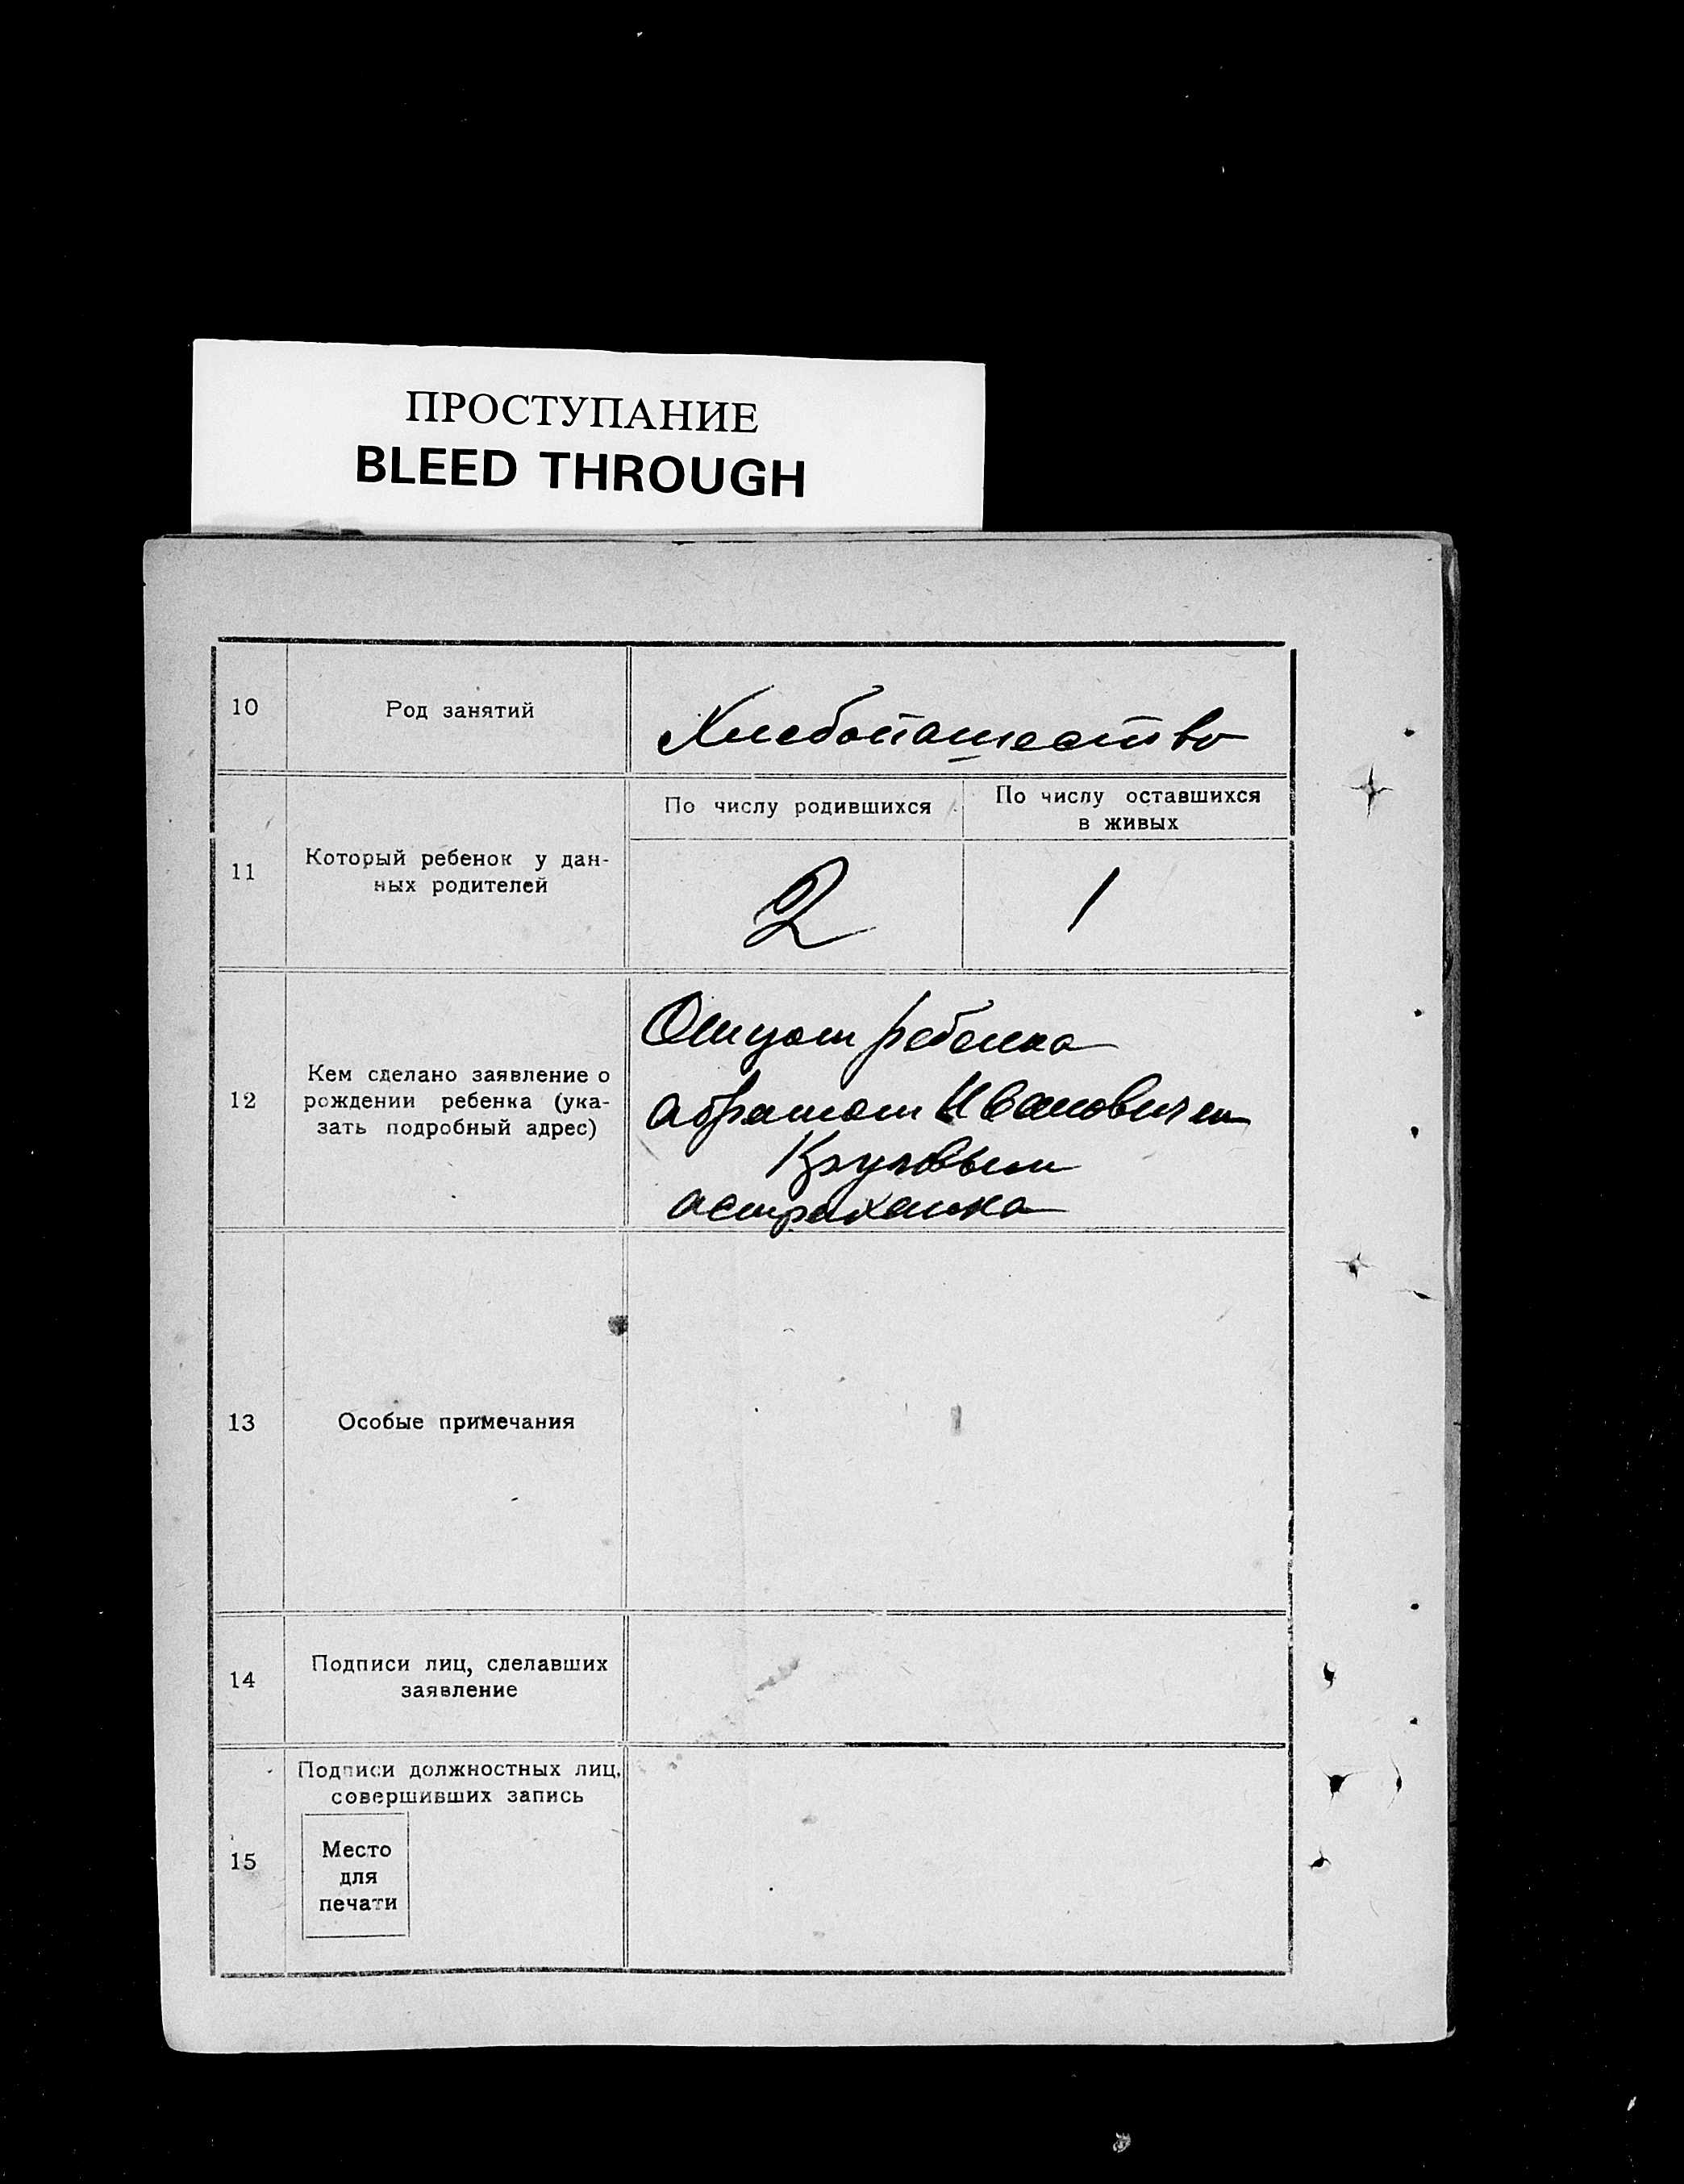 ПРОСТУПАНИЕ
BLEED THROUGH
10
Род занятий
Хлебопашество
11
Который ребенок у дан-
ных родителей
По числу родившихся
По числу оставшихся
в живых
2
1
12
Кем сделано заявление о
рождении ребенка (ука-
зать подробный адрес)
Отцом ребенка
Абрамом Ивановичем
Круговым
Астраханка
13
Особые примечания
14
Подписи лиц, сделавших
заявление
15
Подписи должностных лиц,
совершивших запись
Место
для
печати